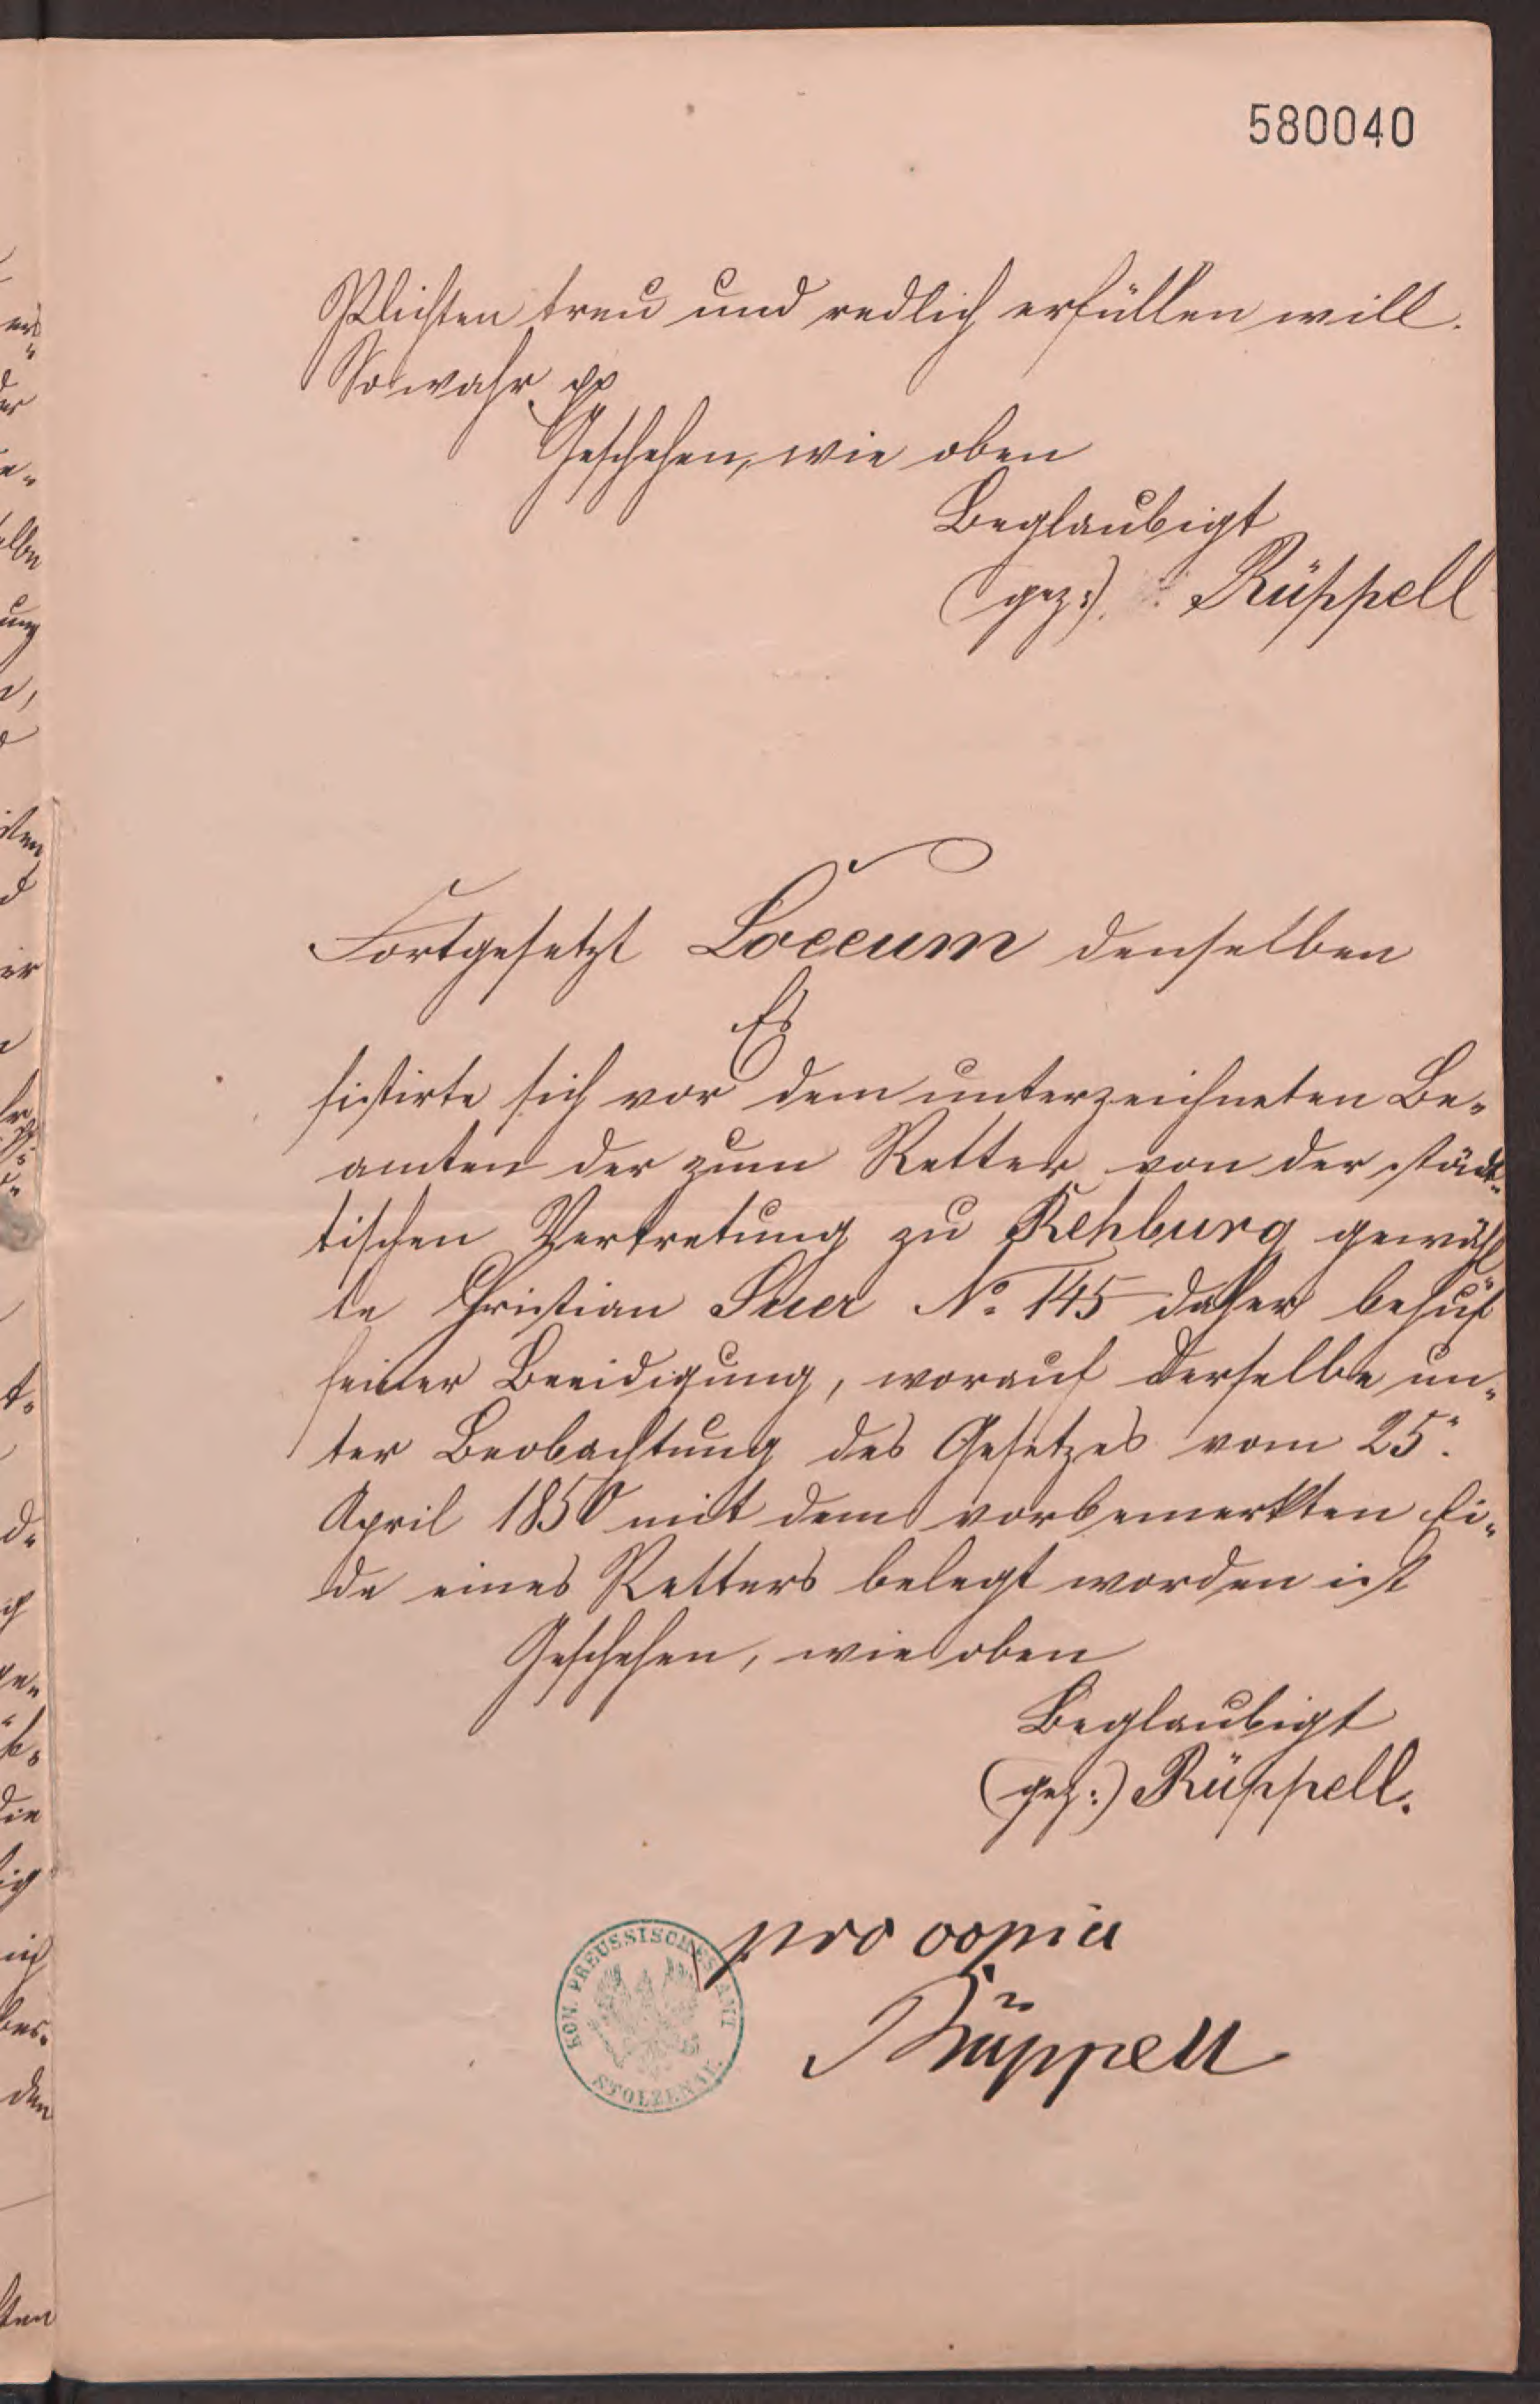 580040
Pflichten treu und redlich erfüllen will.
So wahr pp
Geschehen, wie oben
Beglaubigt
(gez:) Rüppell
Fortgesetzt Loccum denselben
Es
sistirte sich vor dem unterzeichneten Be-
amten der zum Retter von der städ-
tischen Vertretung zu Rehburg gewähl
te Christian Suer No. 145 daher behuf
seiner Beeidigung, worauf derselbe un-
ter Beobachtung des Gesetzes vom 25.
April 1850 mit dem vorbemerkten Ei-
de eines Retters belegt worden ist
Geschehen, wie oben
Beglaubigt
(gez:) Rüppell.
pro copia
Rüppell
KÖN. PREUSSISCHES AMT
STOLZENAU